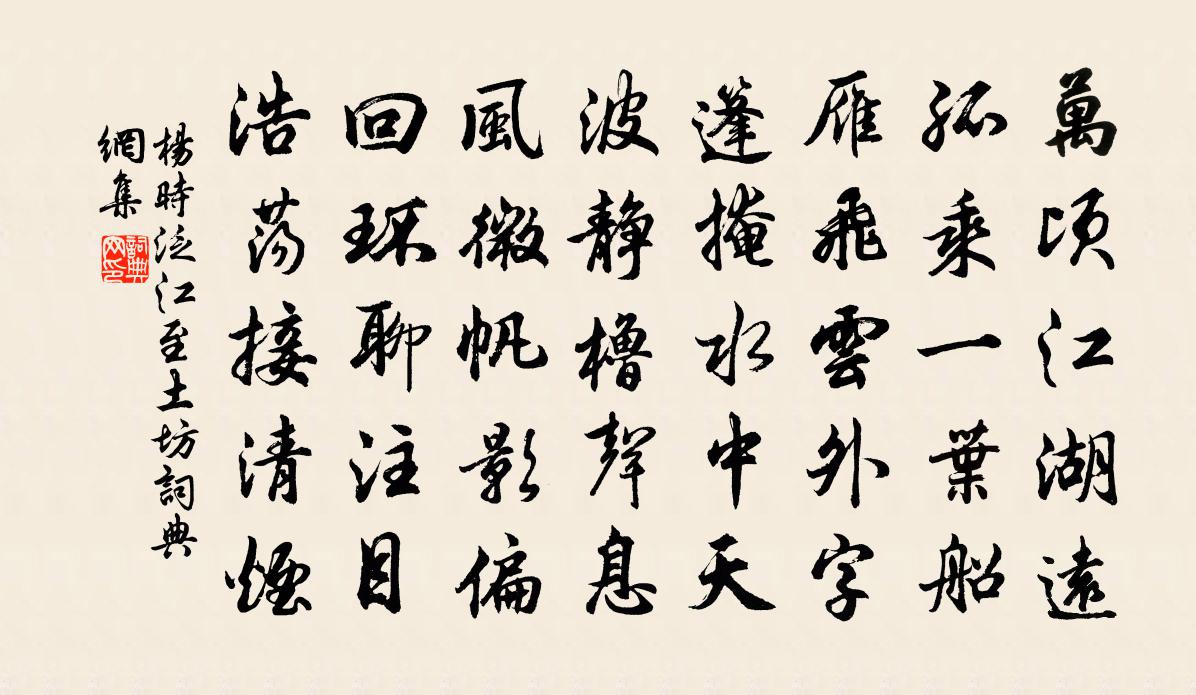 萬頃江湖遠
孤乘一葉船
雁飛雲外字
蓬掩水中天
波靜櫓聲息
風微帆影偏
回環聊注目
浩蕩接清煙
楊時泛江至土坊詞典
網集
詞典
网印